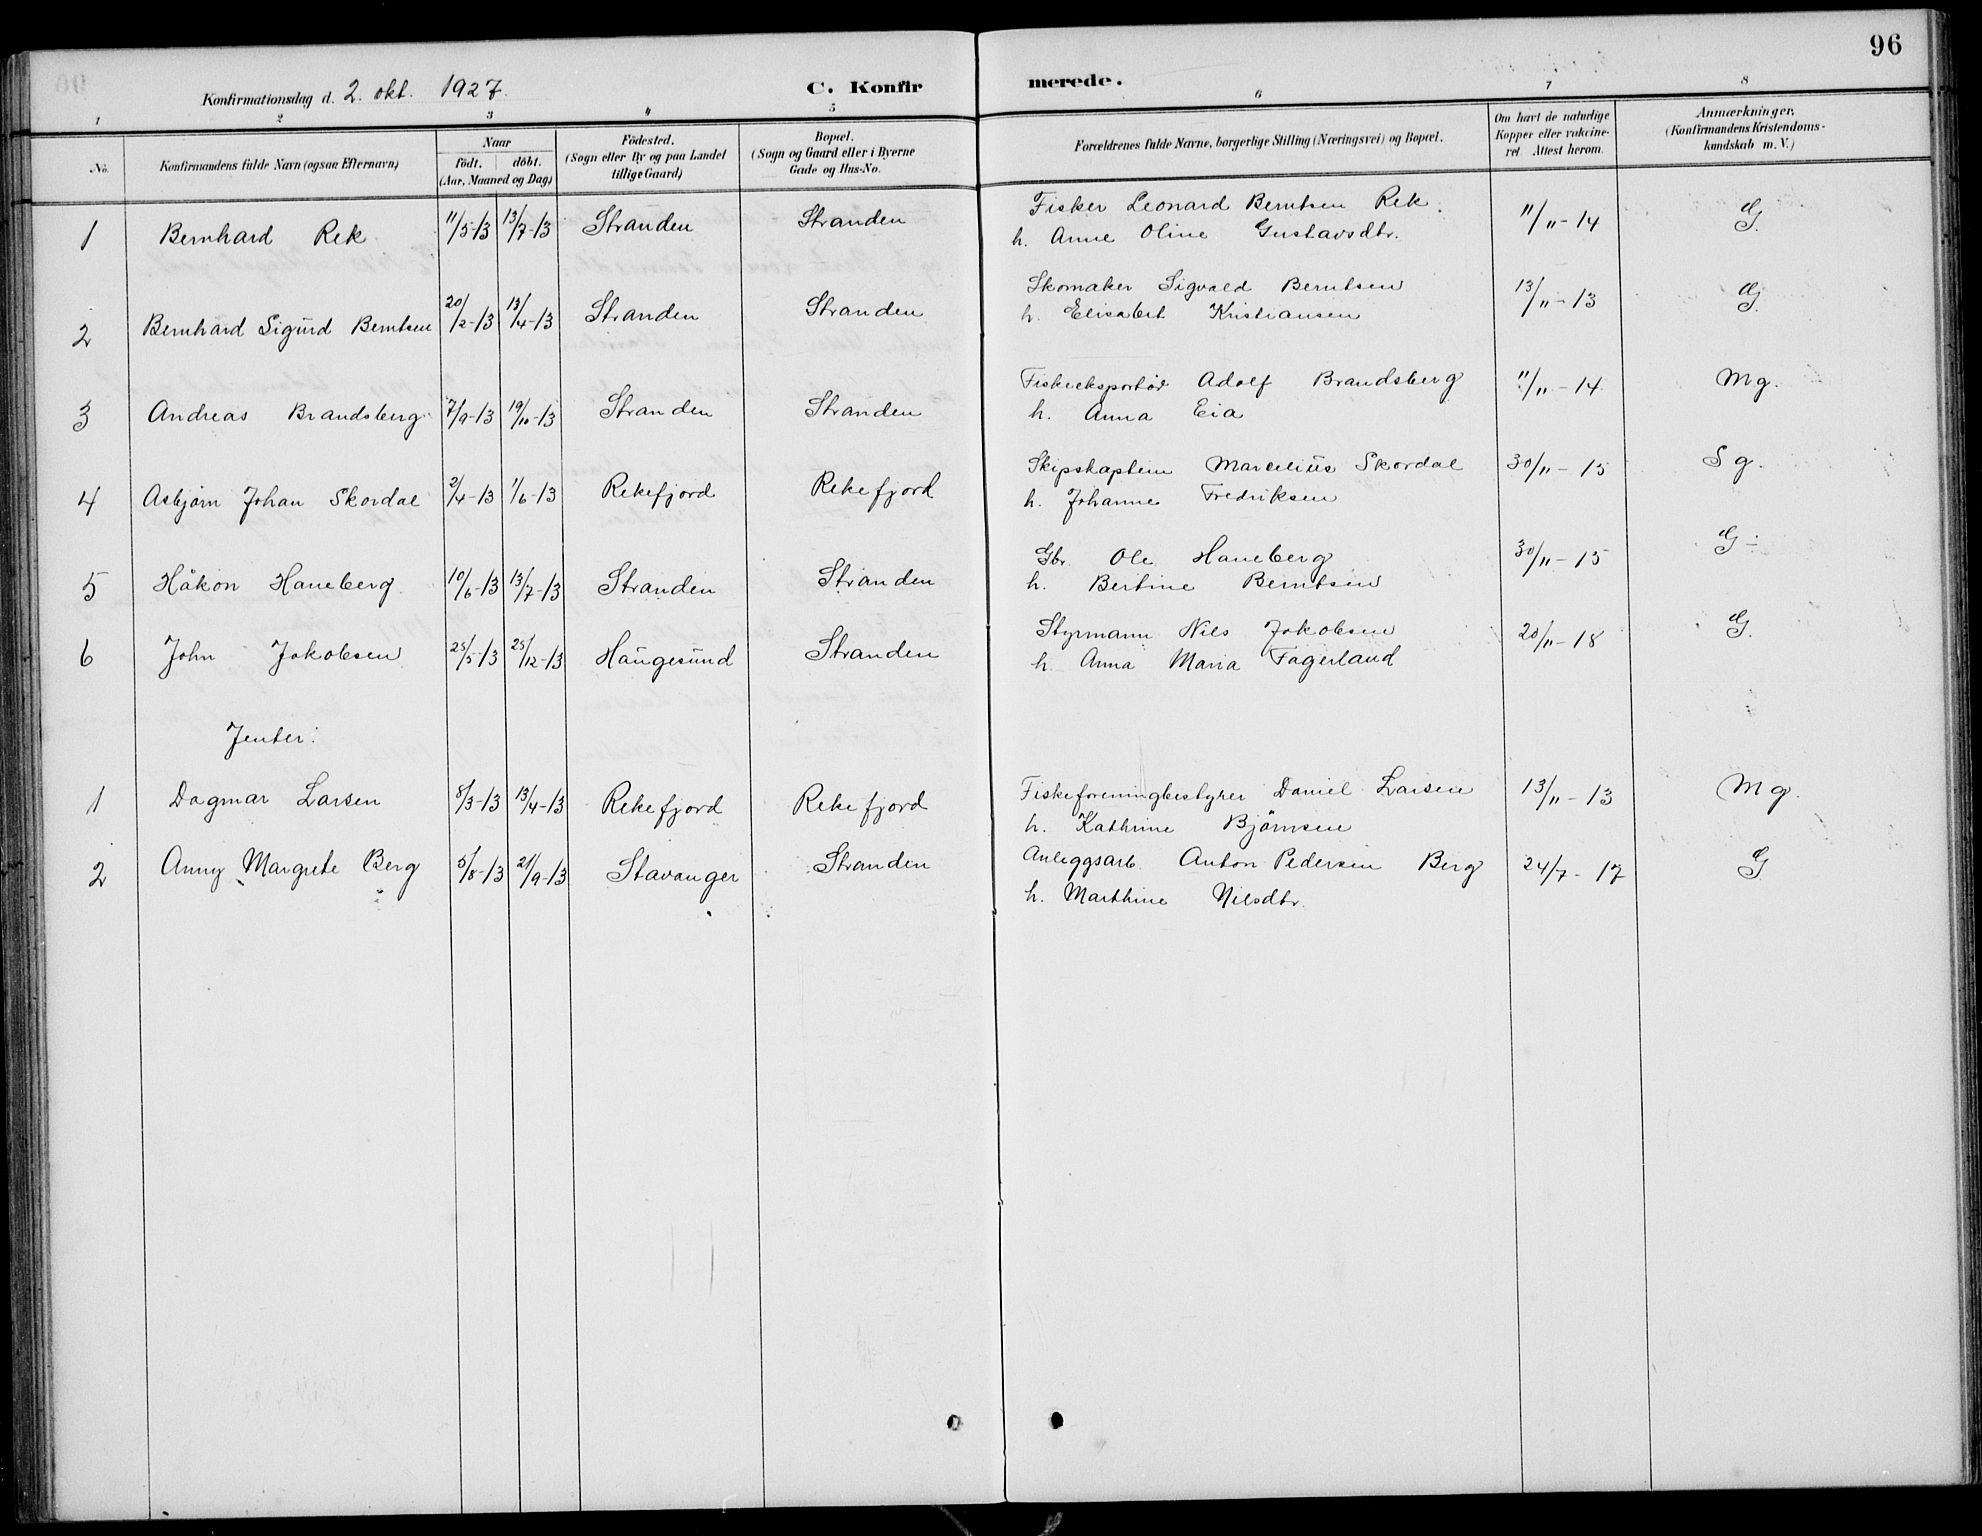 96
Konfirmationsdag d. 2. okt. 1927. C. Konfirmerede.
1 2 3 4 5 6 7 8
No. Konfirmandens fulde Navn (ogsaa Efternavn) Naar født. døbt. (Aar, Maaned og Dag) Fødested. (Sogn eller By og paa Landet tillige Gaard) Bopæl. (Sogn og Gaard eller i Byerne Gade og Hus-No. Forældrenes fulde Navne, borgerlige Stilling (Næringsvei) og Bopæl. Om havt de naturlige Kopper eller vakcineret. Attest herom. Anmærkninger. (Konfirmandens Kristendomskundskab m. V.)
1 Bernhard Rek 11/5-13 13/7-13 Stranden Stranden Fisker Leonard Berntsen Rek. 11/11-14 G.
h. Anne Oline Gustavsdtr.
2 Bernhard Sigurd Berntsen 20/2-13 13/4-13 Stranden Stranden Skomaker Sigvald Berntsen 13/11-13 G.
h. Elisabet Kristiansen
3 Andreas Brandsberg 7/9-13 19/10-13 Stranden Stranden Fiskeeksportør Adolf Brandsberg 11/11-14 Mg.
h. Anna Eia
4 Asbjørn Johan Skordal 2/4-13 1/6-13 Rekefjord Rekefjord Skipskaptein Marcelius Skordal 30/11-15 Sg.
h. Johanne Fredriksen
5 Håkon Haneberg. 10/6-13 13/7-13 Stranden Stranden Gbr. Ole Haneberg 30/11-15 G÷
h. Bertine Berntsen
6 John Jakobsen 25/5-13 25/12-13 Haugesund Stranden Styrmann Nils Jakobsen 20/11-18 G.
h. Anna Maria Fagerland
Jenter:
1 Dagmar Larsen 8/3-13 13/4-13 Rekefjord Rekefjord Fiskeforeningbestyrer Daniel Larsen 13/11-13 Mg.
h. Kathrine Bjørnsen
2 Anny Margrete Berg 5/8-13 21/9-13 Stavanger Stranden Anleggsarb. Anton Pedersen Berg 24/7-17 G
h. Marthine Nilsdtr.